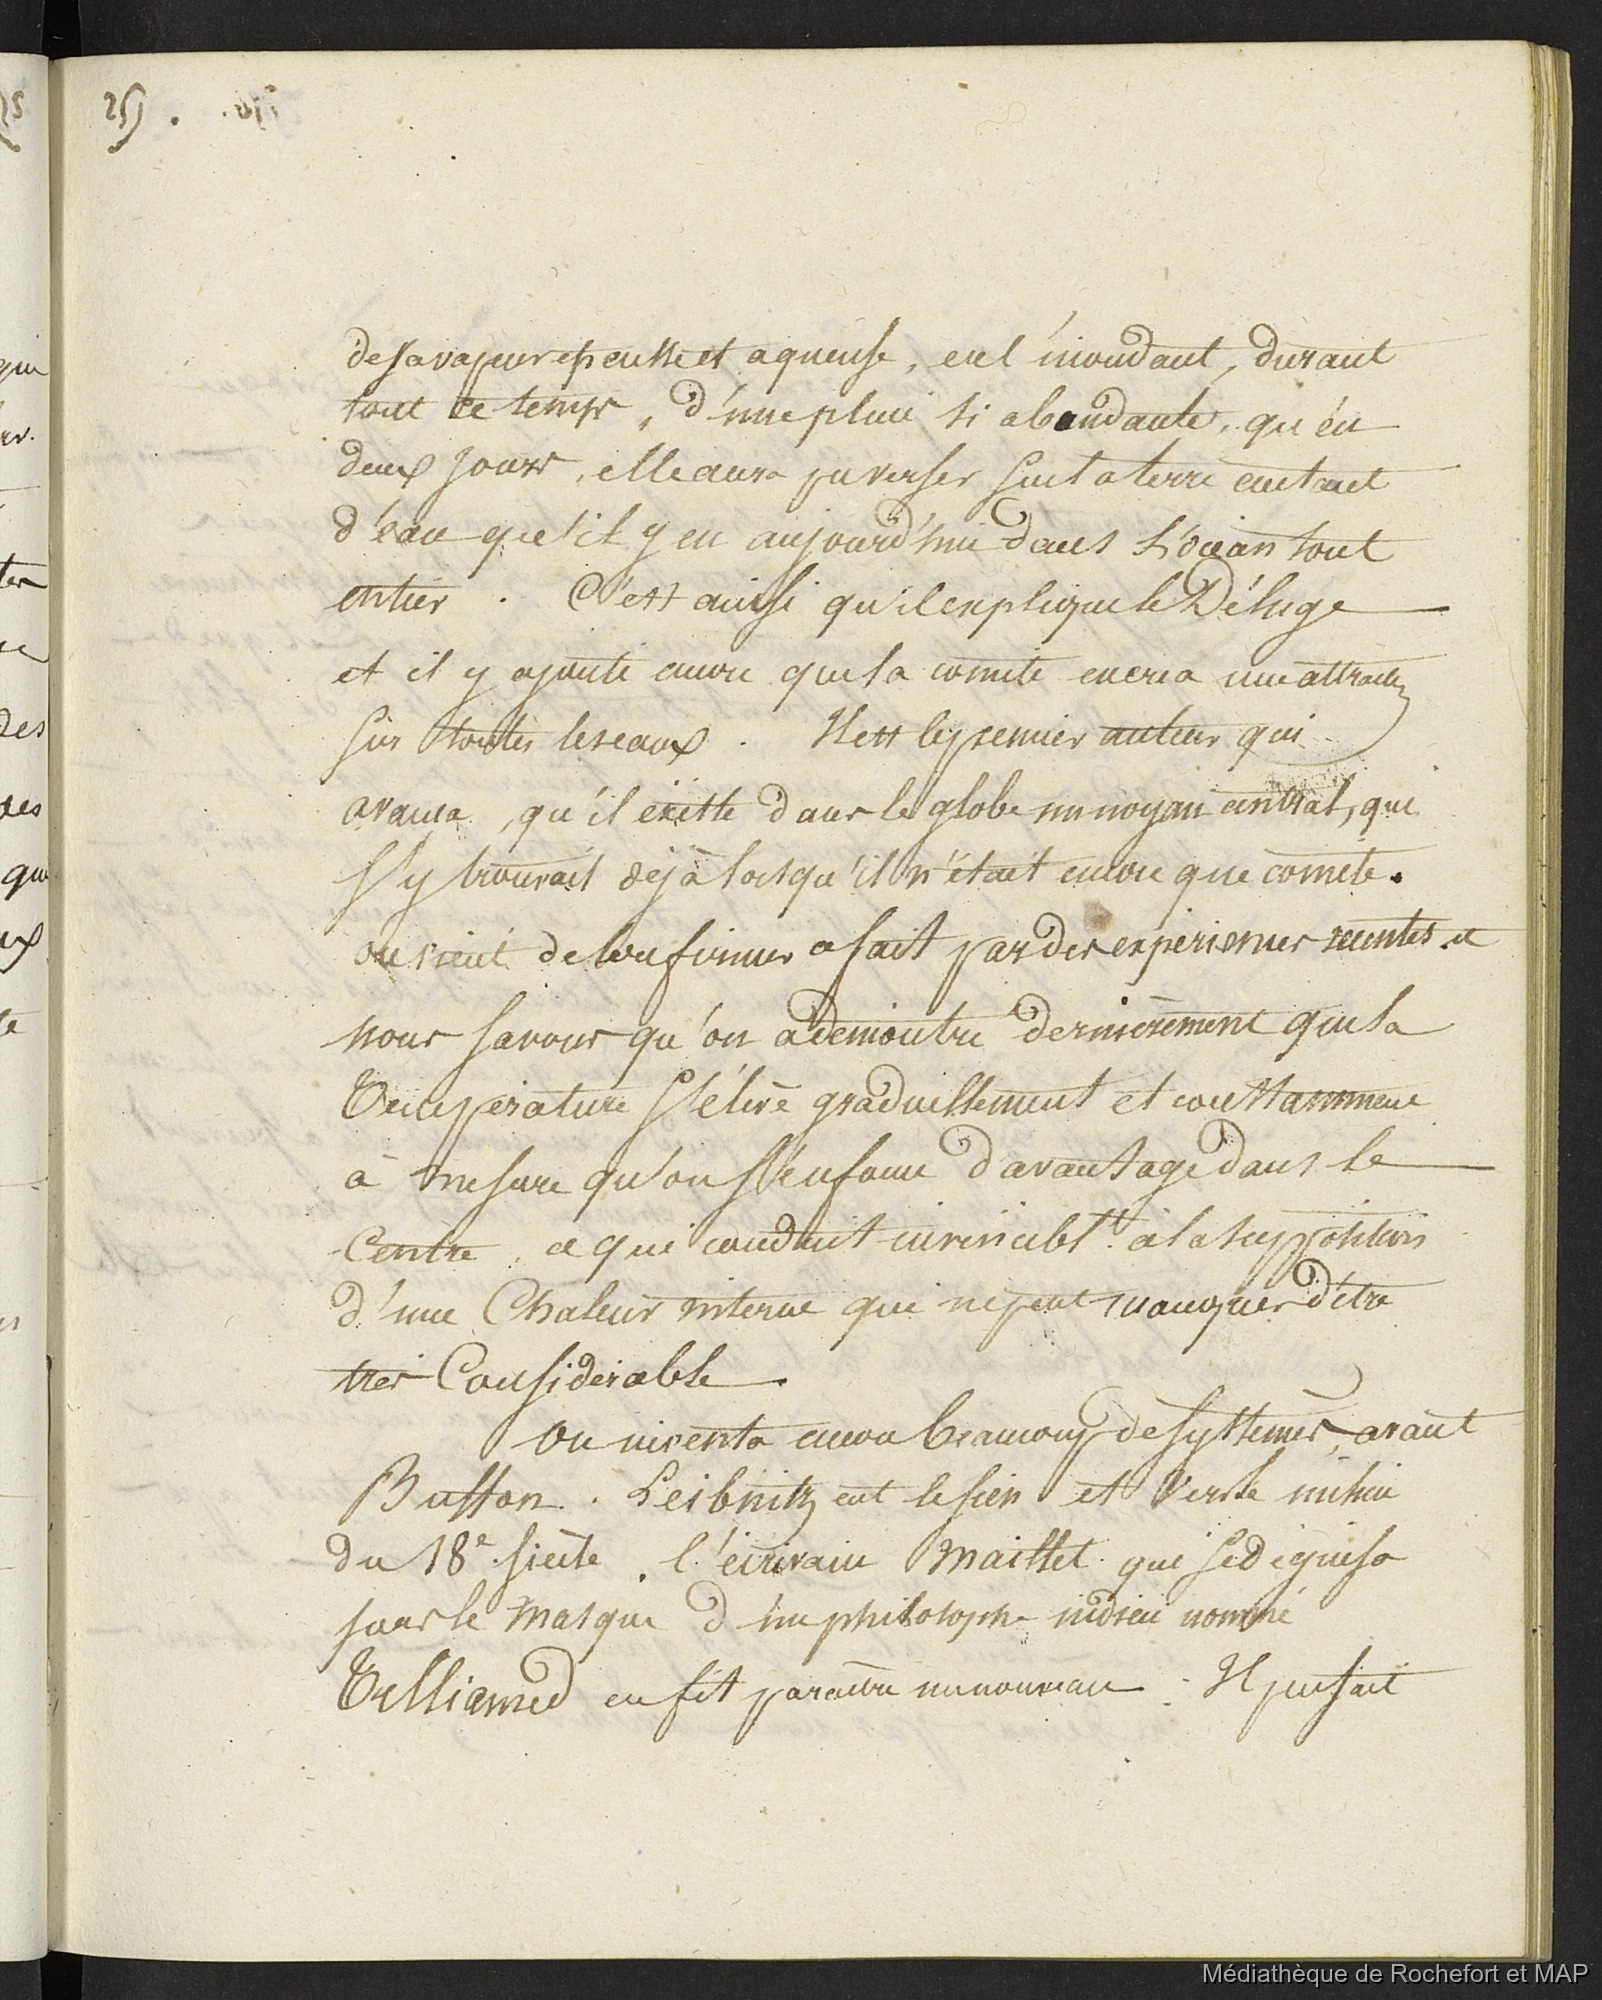 25)
de sa vapeur épeusse et aqueuse, en l'inondant, durant
tout ce temps, d'une pluie si abondante, qu'en
deux jours, elle aura pu verser sur la terre autant
d'eau qu'il y en aujourd'hui dans L'océan tout
entier. C'est ainsi qu'il explique le Déluge
et il y ajoute encore que la comète encrea une attraction
sur toutes les eaux. Il est le premier auteur qui
avança, qu'il existe dans le globe un noyau central, que
s'y trouvait déjà lorsqu'il n'était encore que comète.
on vient de confirmer ce fait par des expériences récentes et
nous savons qu'on a démontré dernièrement que la
Température s'élève graduellement et constamment
à mesure qu'on s'enfonce d'avantage dans le
Centre, ce qui conduit invinciblt. à la supposition
d'une Chaleur interne que ne peut manquer d'être
très Considérable.
On inventa encore beaucoup de systèmes, avant
Buffon. Leibnitz eut le sien et vers le milieu
du 18e siècle, l'écrivain Maillet que se déguisa
sous le Masque d'un philosophe indien nommé
Telliamed en fit paraître un nouveau. Il pensait
Médiathèque de Rochefort et MAP